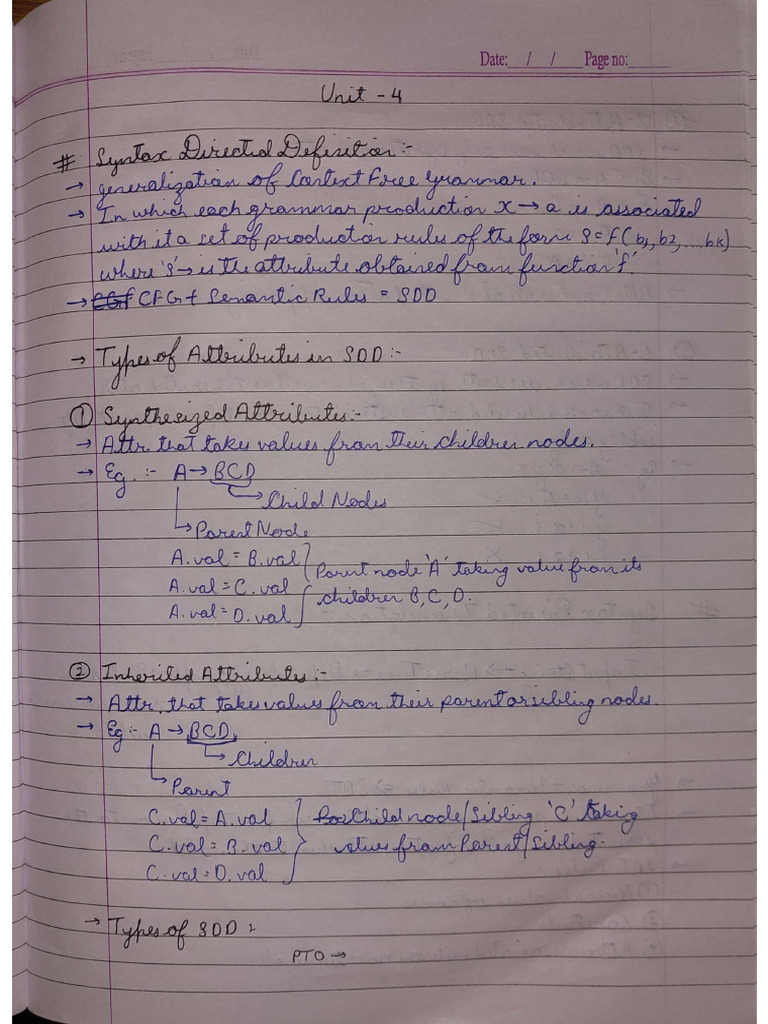 Date: __/__/____ Page no: _____
Unit - 4
# Syntax Directed Definition :-
→ generalization of Context Free Grammar.
→ In which each grammar production X → a is associated
with it a set of production rules of the form S = f(b1, b2, ....bk)
where 'S' → is the attribute obtained from function 'f'.
→ CGF CFG + Semantic Rules = SDD
→ Types of Attributes in SDD :-
① Synthesized Attributes :-
→ Attr. that takes values from their children nodes.
→ Eg. :- A → BCD
→ Child Nodes
→ Parent Node
A.val = B.val
A.val = C.val
A.val = D.val
Parent node 'A' taking value from its
children B, C, D.
② Inherited Attributes :-
→ Attr. that takes values from their parent or sibling nodes.
→ Eg :- A → BCD
→ Children
→ Parent
C.val = A.val
C.val = B.val
C.val = D.val
Child node/Sibling 'C' taking
values from Parent/Sibling.
→ Types of SDD :
PTO →